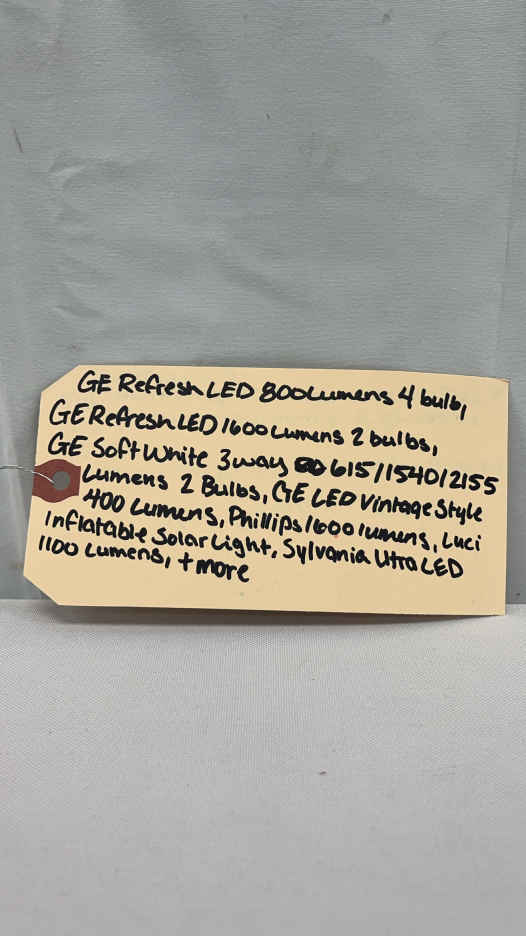 GE Refresh LED 800 Lumens 4 bulb,
GE Refresh LED 1600 Lumens 2 bulbs,
GE Soft White 3way 615/1540/2155
Lumens 2 Bulbs, GE LED Vintage Style
400 Lumens, Phillips 1600 lumens, Luci
Inflatable Solar Light, Sylvania Ultra LED
1100 Lumens, + more